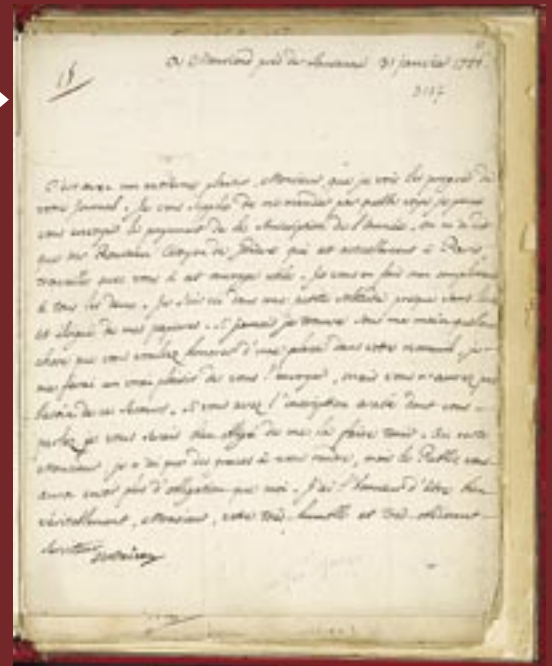 18
A Monrion près de Lausanne 31 janvier
C'est avec un extrême plaisir, Monsieur, que je vois les progrès de
votre journal. Je vous supplie de me mander par quelle voye je puis
vous envoyer le payement de la souscription de l'année. on m'a dit
que Mr Rousseau Citoyen de Genève qui est actuellement à Paris,
travaille avec vous à cet ouvrage utile. Je vous en fais mon compliment
à tous les deux. Je suis ici dans une petite solitude presque sans livres
et éloigné de mes papiers. Si jamais je trouve sous ma main quelque
chose que vous vouliez honorer d'une place dans votre recueil, je
me ferai un vrai plaisir de vous l'envoyer, mais vous n'aurez pas
besoin de ces secours. Si vous avez l'inscription arabe dont vous
parlez je vous serais bien obligé de me la faire tenir. Au reste
Monsieur je n'ai que des graces à vous rendre, mais le Public vous
aura encor plus d'obligation que moi. J'ai l'honneur d'être bien
véritablement, Monsieur, votre très humble et très obéissant
serviteur